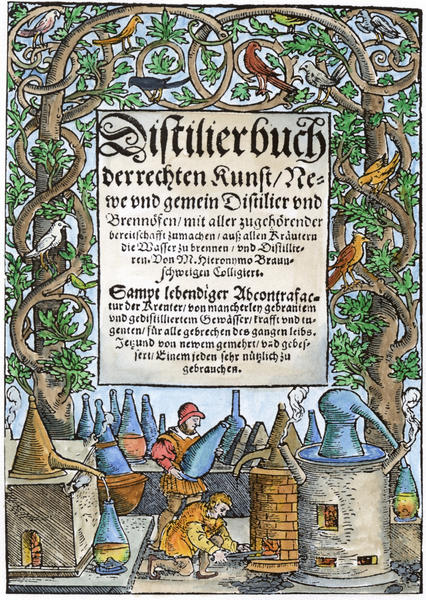 Distilierbuch
der rechten Kunst/Ne-
we vnd gemein Distilier vnd
Brennöfen/mit aller zugehörender
bereitschafft zumachen/auß allen Kräutern
die Wasser zu brennen/vnd Distillie-
ren. Von M. Hieronymo Braun-
schweigen Colligiert.
Sampt lebendiger Abcontrafac-
tur der Kreuter/von mancherley gebrantem
vnd gedistilliertem Gewässer/krafft vnd tu-
genten/für alle gebrechen des gantzen leibs.
Jetzund von newem gemehrt/vnd gebes-
sert/Einem jeden sehr nützlich zu
gebrauchen.